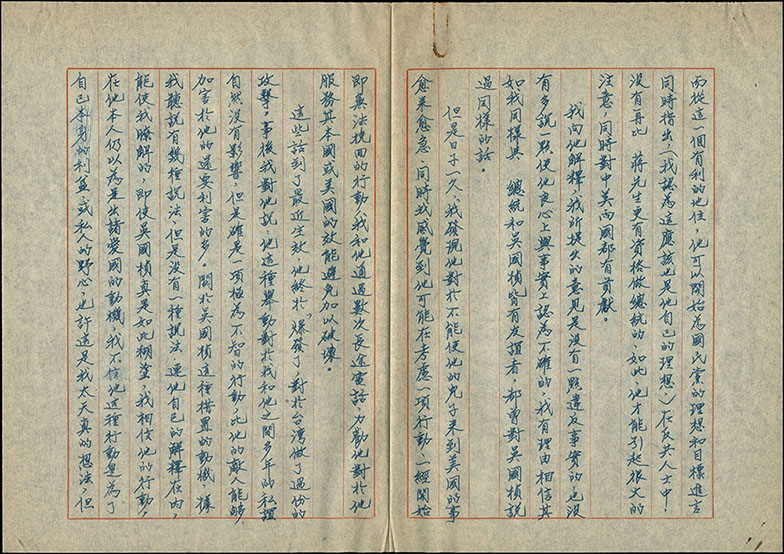 而從這一個有利的地位，他可以開始為國民黨的理想和目標進言
同時指出，（我認為這應該也是他自己的理想，）在反共人士中，
沒有再比　蔣先生更有資格做總統的，如此，他才能引起很大的
注意，同時對中美兩國都有貢獻。
我向他解釋，我所提出的意見是沒有一點違反事實的也沒
有多說一點使他良心上與事實上認為不確的，我有理由相信其
如我同樣與　總統和吳國楨皆有友誼者，都曾對吳國楨說
過同樣的話。
但是日子一久，我發現他對於不能使他的兒子來到美國的事
愈來愈急，同時我感覺到他可能在考慮一項行動，一經開始
即無法挽回的行動，我和他通過數次長途電話，力勸他對於他
服務其本國或美國的效能避免加以破壞。
這些話到了最近生效，他終於「爆發了」，對於台灣做了過份的
攻擊，事後我對他說：他這種舉動對於我和他之間多年的私誼
自然沒有影響，但是確是一項極為不智的行動，比他的敵人能夠
加害於他的還要利害的多。關於吳國楨這種措置的動機，樣
我聽說有幾種說法，但是沒有一種說法，連他自己的解釋在內，
能使我瞭解的，即使吳國楨真是如此糊塗，我相信他的行動，
在他本人仍以為是出諸愛國的動機，我不信他這種行動是為了
自己本身的利益，或私人的野心，也許這是我太天真的想法，但